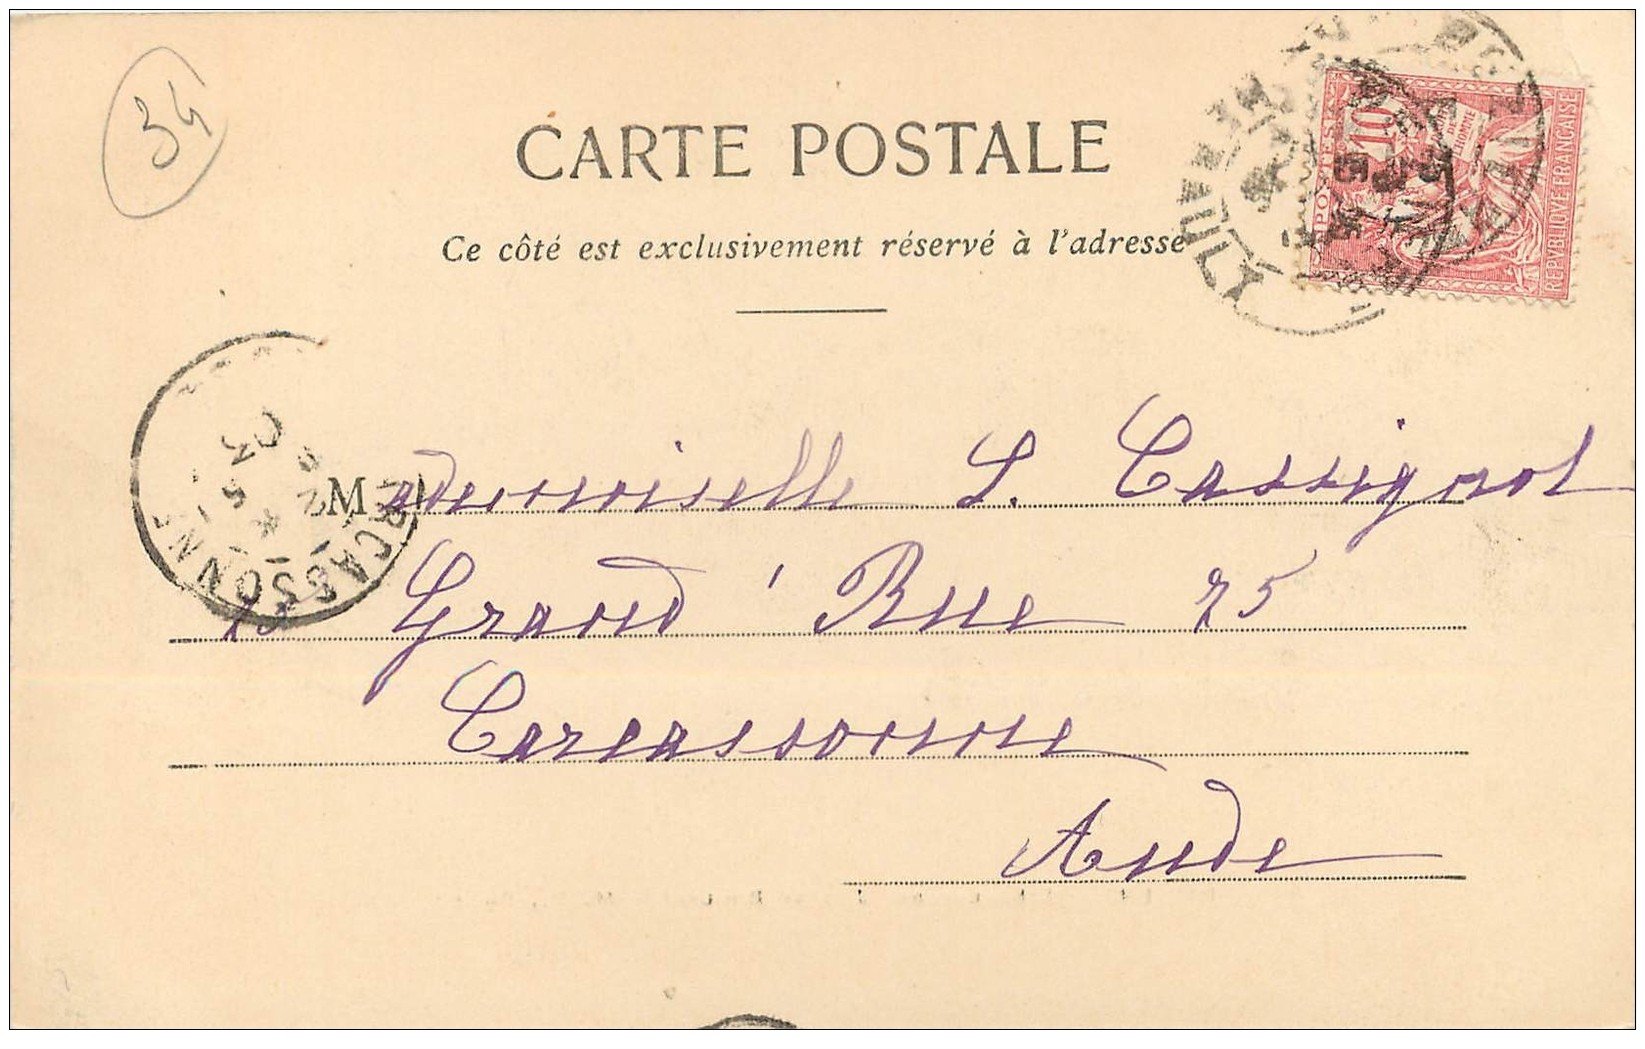 34
CARTE POSTALE
Ce côté est exclusivement réservé à l'adresse
POSTES
10
DROITS DE L'HOMME
REPVBLIQVE FRANÇAISE
CARCASSONNE
Mademoiselle L. Cassignol
75 Grand' Rue 75
Carcassonne
Aude